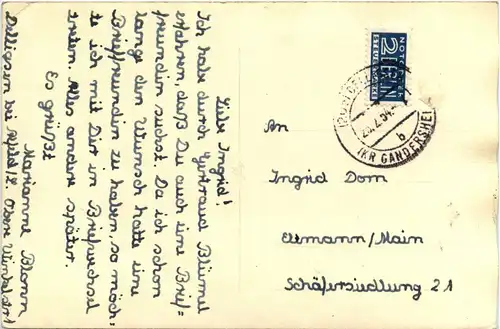 Liebe Ingrid!
Ich habe durch Gertraud Blümel
erfahren, daß Du auch eine Brief=
freundin suchst. Da ich schon
lange den Wunsch hatte eine
Brieffreundin zu haben, so möch=
te ich mit Dir in Briefwechsel
treten. Alles andere später.
Es grüßt
Marianne Blomm
Delligsen bei Alfeld/L. Obere
NOTOPFER
2 BERLIN
STEUERMARKE
b
(KR GANDERSHEI
An
Ingrid Dorn
Eltmann/Main
Schäfersiedlung 21